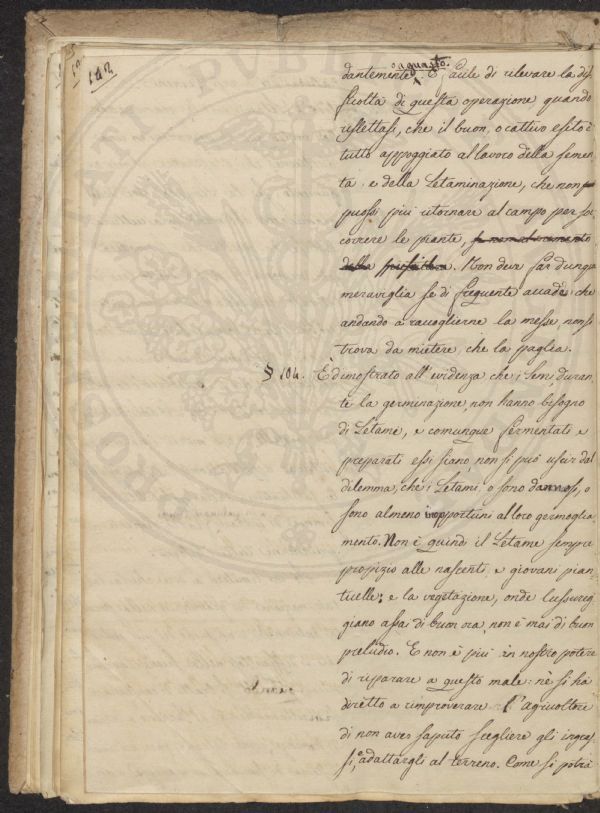 142
o guasto.
dantemente. È facile di rilevare la dif
ficoltà di questa operazione quando
riflettasi, che il buon, o cattivo esito è
tutto appoggiato al lavoro della semen
ta e della Letaminazione, che non
puossi più ritornare al campo per soc
correre le piante,
della . Non deve far dunque
meraviglia se di frequente accade, che
andando a raccoglierne la messe, non si
trova da mietere, che la paglia.
§ 104. È dimostrato all'evidenza che i Semi, duran
te la germinazione, non hanno bisogno
di Letame, e comunque fermentati e
preparati essi siano, non si può uscir dal
dilemma, che i Letami, o sono dannosi, o
sono almeno inopportuni al loro germoglia
mento. Non è quindi il Letame sempre
propizio alle nascenti, e giovani pian
ticelle; e la vegetazione, onde lussureg
giano assai di buon ora, non è mai di buon
preludio. E non è più in nostro potere
di riparare a questo male: nè si ha
diretto a rimproverare l'agricoltore
di non aver saputo scegliere gli ingras
si, o adattargli al terreno. Come si potrà